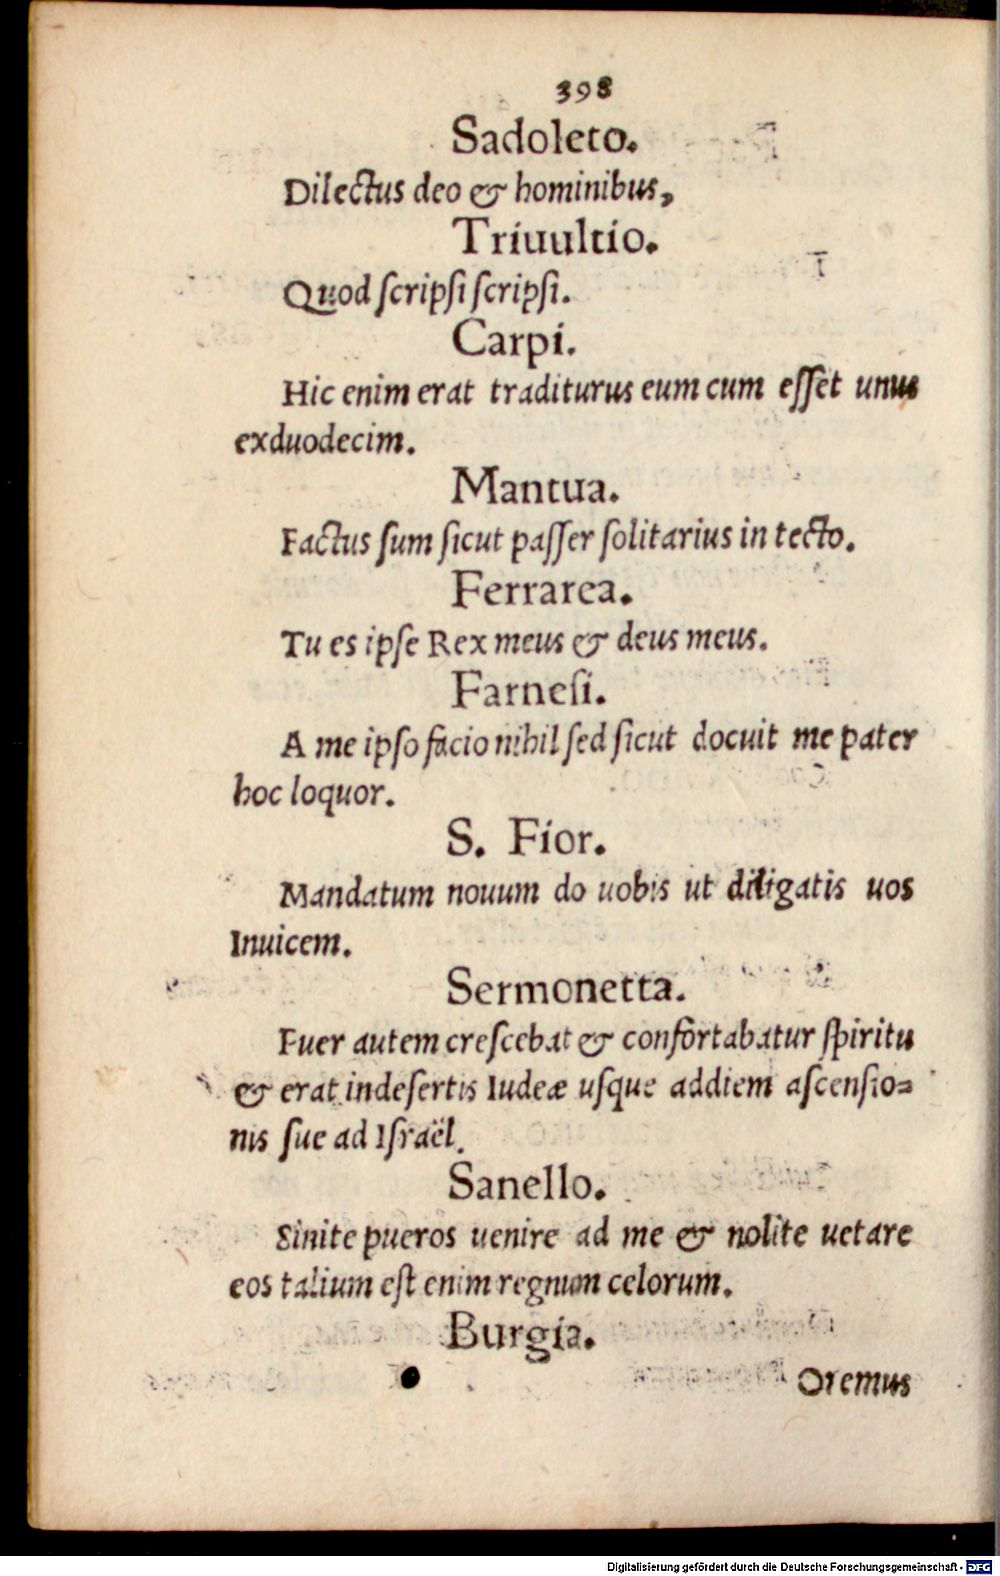 398
Sadoleto.
Dilectus deo & hominibus,
Triuultio.
Quod scripsi scripsi.
Carpi.
Hic enim erat traditurus eum cum esset unus
exduodecim.
Mantua.
Factus sum sicut passer solitarius in tecto.
Ferrarea.
Tu es ipse Rex meus & deus meus.
Farnesi.
A me ipso facio nihil sed sicut docuit me pater
hoc loquor.
S. Fior.
Mandatum nouum do uobis ut diligatis uos
Inuicem.
Sermonetta.
Fuer autem crescebat & confortabatur spiritu
& erat indesertis Iudeæ usque addiem ascensio=
nis sue ad Israël.
Sanello.
Sinite pueros uenire ad me & nolite uetare
eos talium est enim regnum celorum.
Burgia.
Oremus
Digitalisierung gefördert durch die Deutsche Forschungsgemeinschaft - DFG